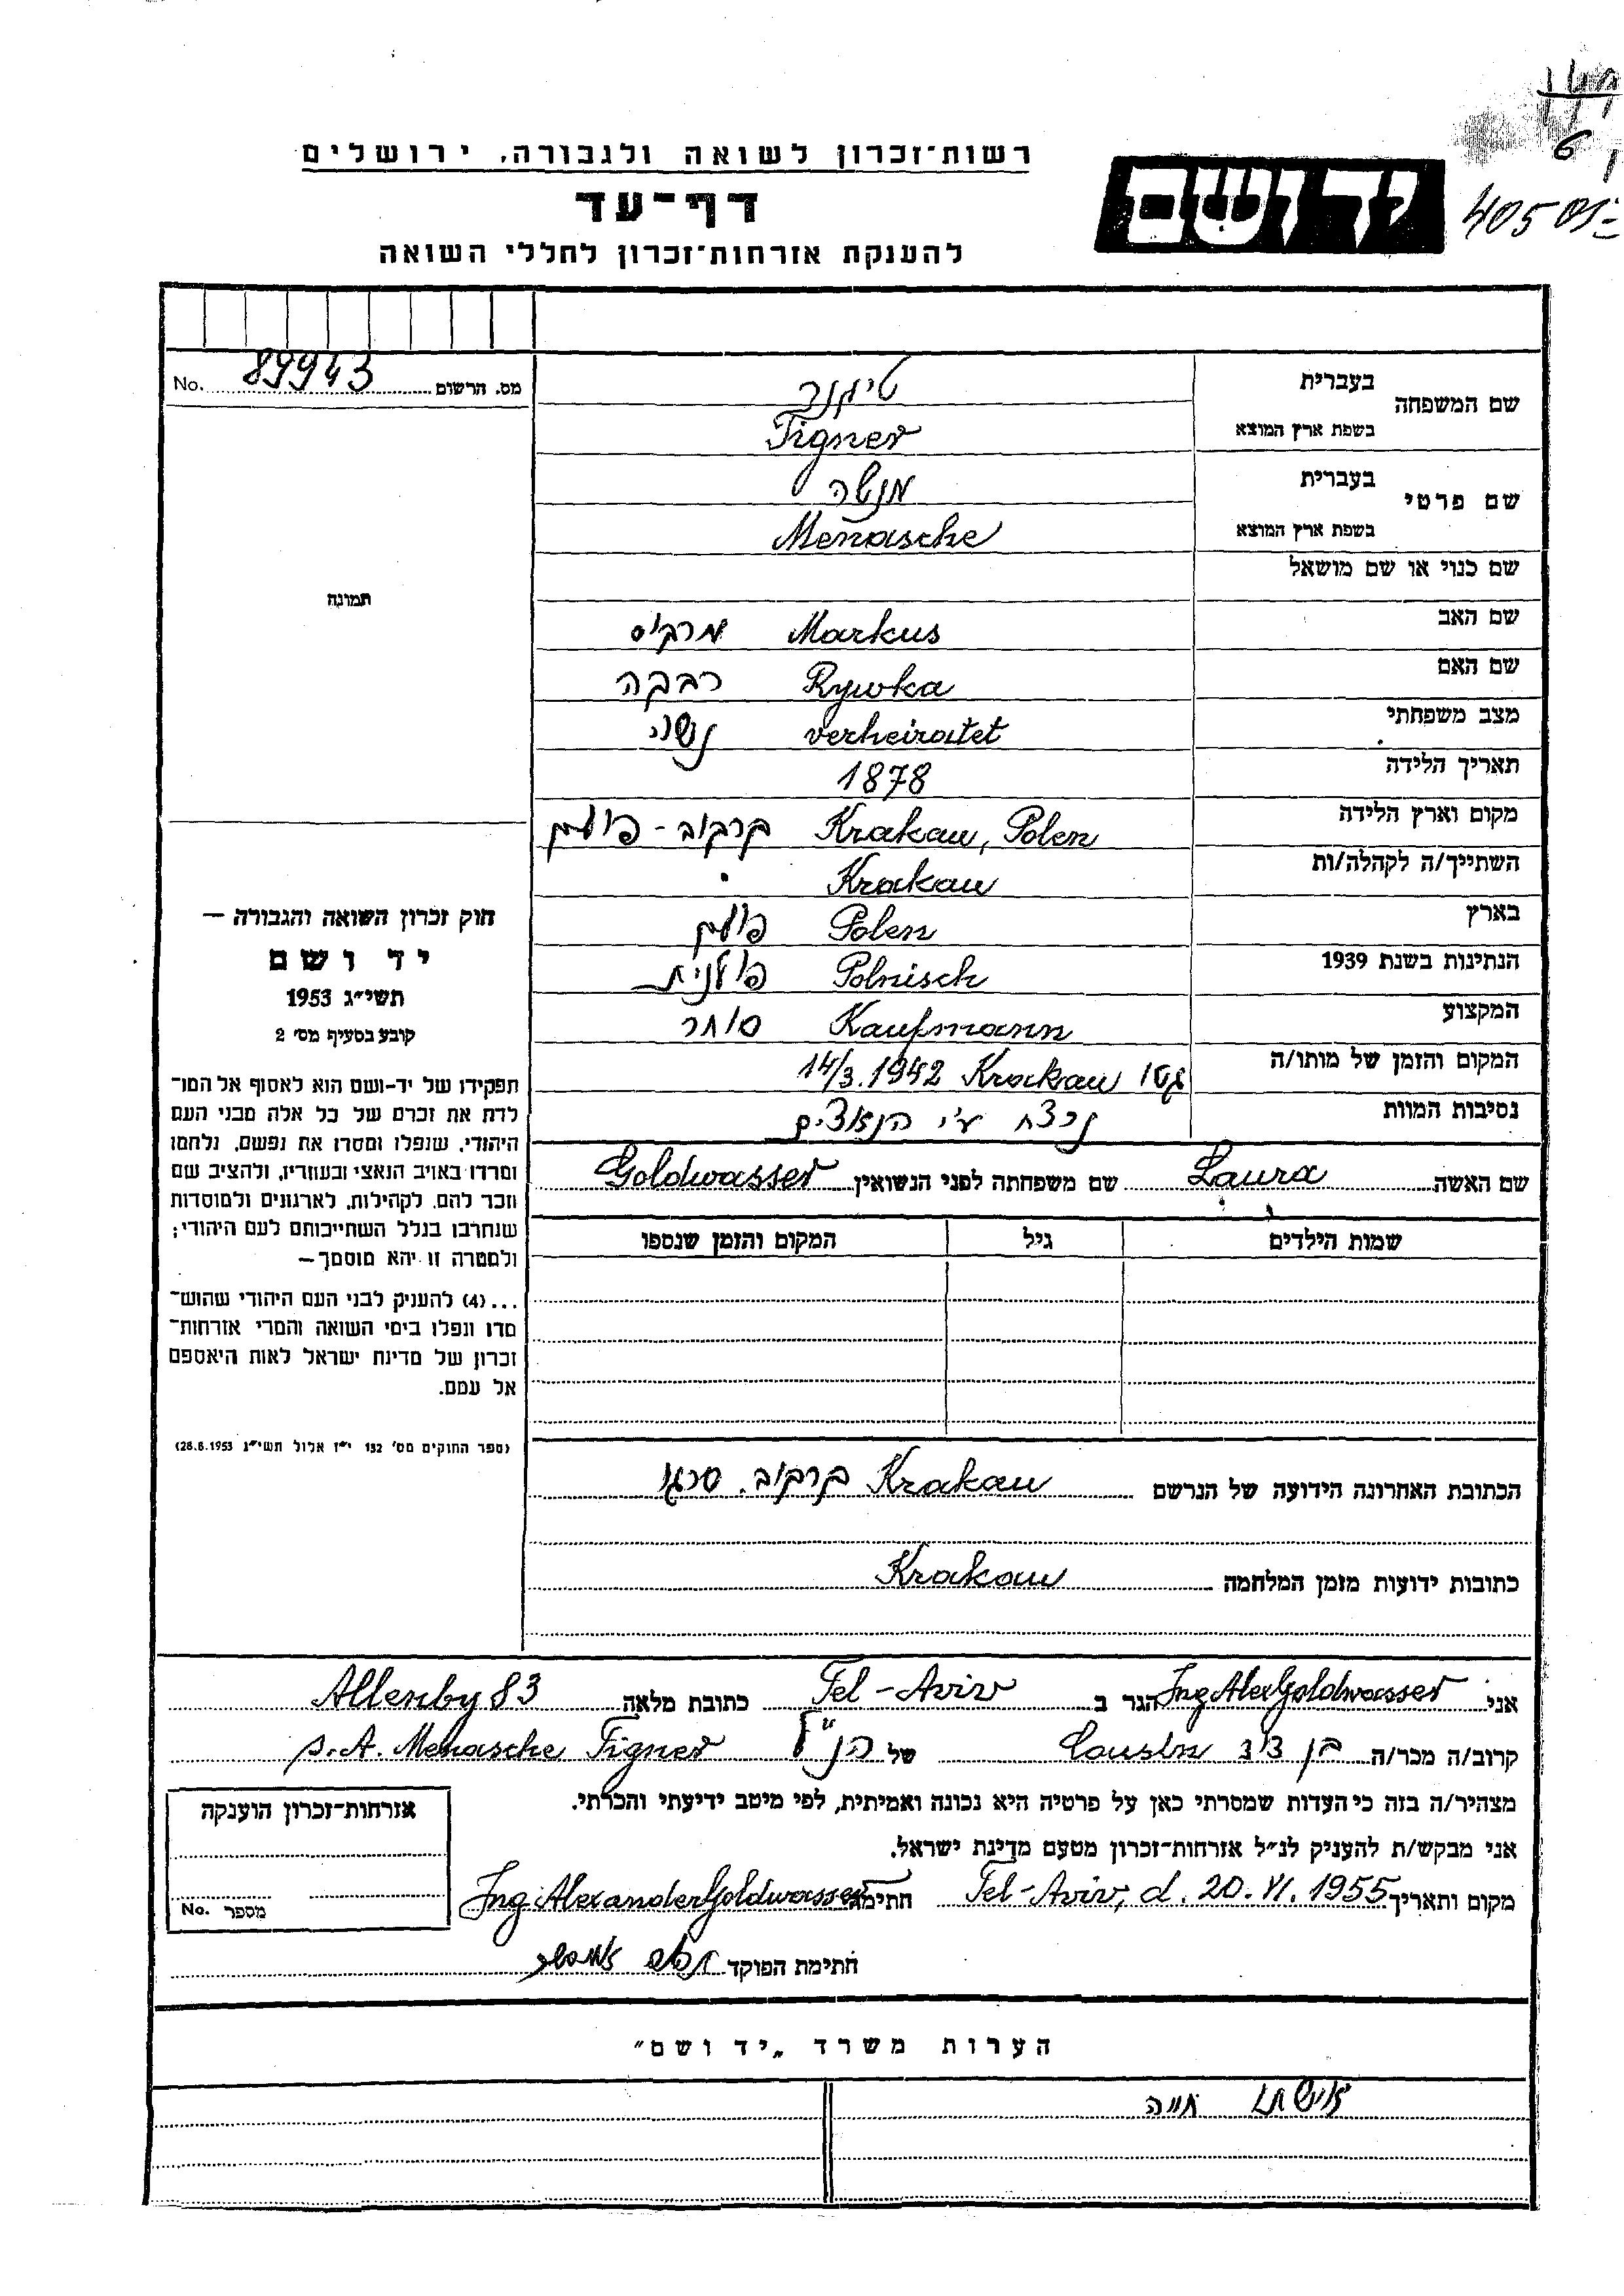 רשות־זכרון לשואה ולגבורה, ירושלים
דף־עד
להענקת אזרחות־זכרון לחללי השואה
יד ושם
6
405
מס. הרשום 89943 No.
שם המשפחה
בעברית טיגנר
בשפת ארץ המוצא Tigner
שם פרטי
בעברית מנשה
בשפת ארץ המוצא Menasche
שם כנוי או שם מושאל
שם האב Markus מרקוס
שם האם Rywka רבקה
מצב משפחתי verheiratet נשוי
תאריך הלידה 1878
מקום וארץ הלידה Krakau, Polen קרקוב - פולין
השתייך/ה לקהלה/ות Krakau
בארץ Polen פולין
הנתינות בשנת 1939 Polnisch פולנית
המקצוע Kaufmann סוחר
המקום והזמן של מותו/ה גטו Krakau 14/3.1942
נסיבות המוות נרצח ע"י הנאצים
שם האשה Laura שם משפחתה לפני הנשואין Goldwasser
שמות הילדים גיל המקום והזמן שנספו
הכתובת האחרונה הידועה של הנרשם Krakau קרקוב.
כתובות ידועות מזמן המלחמה Krakau
תמונה
חוק זכרון השואה והגבורה —
יד ושם
תשי״ג 1953
קובע בסעיף מס׳ 2
תפקידו של יד-ושם הוא לאסוף אל המו־
לדת את זכרם של כל אלה מבני העם
היהודי, שנפלו ומסרו את נפשם, נלחמו
ומרדו באויב הנאצי ובעוזריו, ולהציב שם
וזכר להם, לקהילות, לארגונים ולמוסדות
שנחרבו בגלל השתייכותם לעם היהודי;
ולמטרה זו יהא מוסמך —
...(4) להעניק לבני העם היהודי שהוש־
מדו ונפלו בימי השואה והמרי אזרחות־
זכרון של מדינת ישראל לאות היאספם
אל עמם.
(ספר החוקים מס׳ 132 י״ז אלול תשי״ג 28.8.1953)
אני Ing Alex Goldwasser הגר ב Tel-Aviv כתובת מלאה Allenby 83
קרוב/ה מכר/ה בן דוד Cousin של הנ"ל p. A. Menasche Tigner
מצהיר/ה בזה כי העדות שמסרתי כאן על פרטיה היא נכונה ואמיתית, לפי מיטב ידיעתי והכרתי.
אני מבקש/ת להעניק לנ״ל אזרחות־זכרון מטעם מדינת ישראל.
מקום ותאריך Tel-Aviv, d. 20. VI. 1955 חתימה Ing Alexander Goldwasser
חתימת הפוקד
אזרחות־זכרון הוענקה
מספר No.
הערות משרד „יד ושם״
אשתו חיה